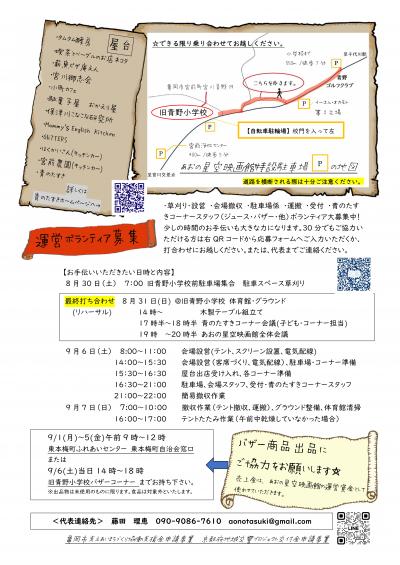 屋台
・タムタム酵房
・喫茶とベーグルのお店ネコタ
・宮川郷志会
・Mommy's English Kitchen
・SETTERS
・青のたすき
詳しくは
青のたすきホームページへ→
☆できる限り乗り合わせてお越しください。
こちらを歩きます。
旧青野小学校
青野
ゴルフクラブ
P
P
P
P
【自転車駐輪場】校門を入って左
あおの星空映画館特設駐車場 P の地図
道路を横断される際は十分ご注意ください。
運営ボランティア募集
・草刈り・設営・会場撤収・駐車場係・運搬・受付・青のたす
きコーナースタッフ(ジュース・バザー・他)ボランティア大募集中!
少しの時間のお手伝いも大きな力になります。30分でもご協力い
ただける方は右QRコードから応募フォームへご入力いただくか、
打合わせにお越しください。または、代表までご連絡ください。
【お手伝いいただきたい日時と内容】
8月30日(土) 7:00 旧青野小学校前駐車場集合 駐車スペース草刈り
最終打ち合わせ 8月31日(日) @旧青野小学校 体育館・グラウンド
(リハーサル) 14時~ 木製テーブル組立て
17時半~18時半 青のたすきコーナー会議(子ども・コーナー担当)
19時 ~20時半 あおの星空映画館全体会議
9月6日(土) 8:00~11:00 会場設営(テント、スクリーン設置、電気配線)
14:00~15:30 会場設営(客席づくり、電気配線)、駐車場・コーナー準備
15:30~16:30 屋台出店受け入れ、各コーナー準備
16:30~21:00 駐車場、会場スタッフ、受付・青のたすきコーナースタッフ
21:00~22:00 簡易撤収作業
9月7日(日) 7:00~10:00 撤収作業(テント撤収、運搬)、グラウンド整備、体育館清掃
16:00~17:00 テントたたみ作業(午前中乾燥していなかった場合)
9/1(月)~5(金)午前9時~12時
東本梅町ふれあいセンター 東本梅町自治会窓口
または
9/6(土)当日14時~18時
旧青野小学校バザーコーナー までお持ち下さい。
※出品物は未使用のものに限ります。食品は対象外といたします。
バザー商品出品に
ご協力をお願いします☆
売上金は、あおの星空映画館の運営資金として
使わせていただきます。
<代表連絡先> 藤田 理恵 090-9086-7610 aonotasuki@gmail.com
LINE